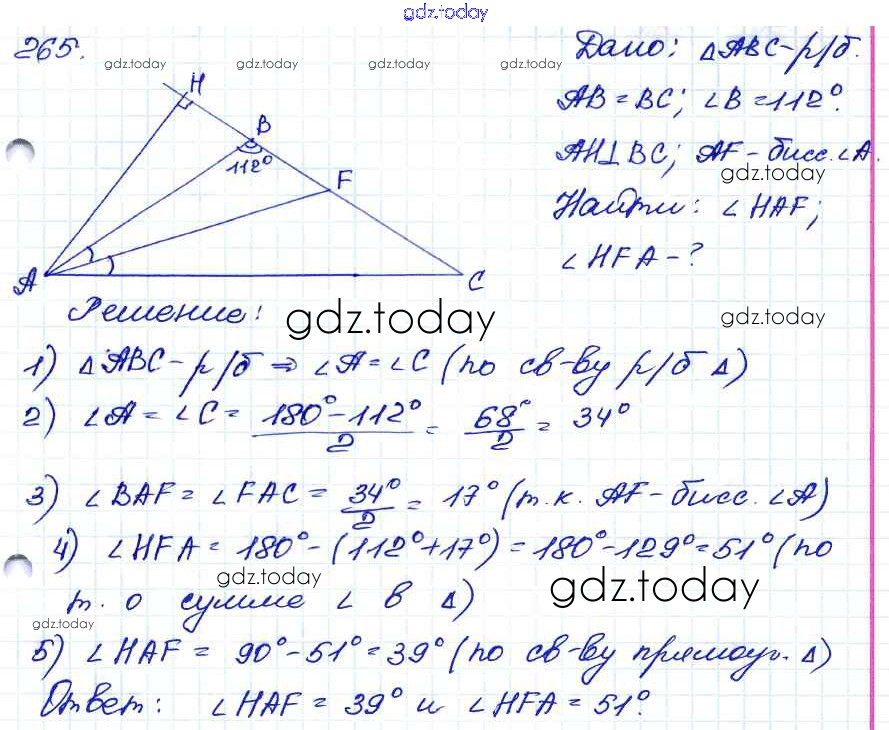 gdz.today
265.
Дано: △ABC-р/б.
gdz.today gdz.today gdz.today gdz.today
H
AB=BC; ∠B=112°.
B
112°
AH⊥BC; AF-бисс.∠A.
gdz.today
F
Найти: ∠HAF;
∠HFA-?
A
C
Решение!
gdz.today
gdz.today
1) △ABC-р/б ⇒ ∠A=∠C (по св-ву р/б △)
2) ∠A = ∠C = (180°-112°)/2 = 68°/2 = 34°
3) ∠BAF = ∠FAC = 34°/2 = 17° (т.к. AF-бисс. ∠A)
4) ∠HFA = 180°-(112°+17°)=180°-129°=51° (по
gdz.today
gdz.today
т. о сумме ∠ в △)
gdz.today
5) ∠HAF = 90°-51°=39° (по св-ву прямоуг. △)
Ответ: ∠HAF = 39° и ∠HFA = 51°.